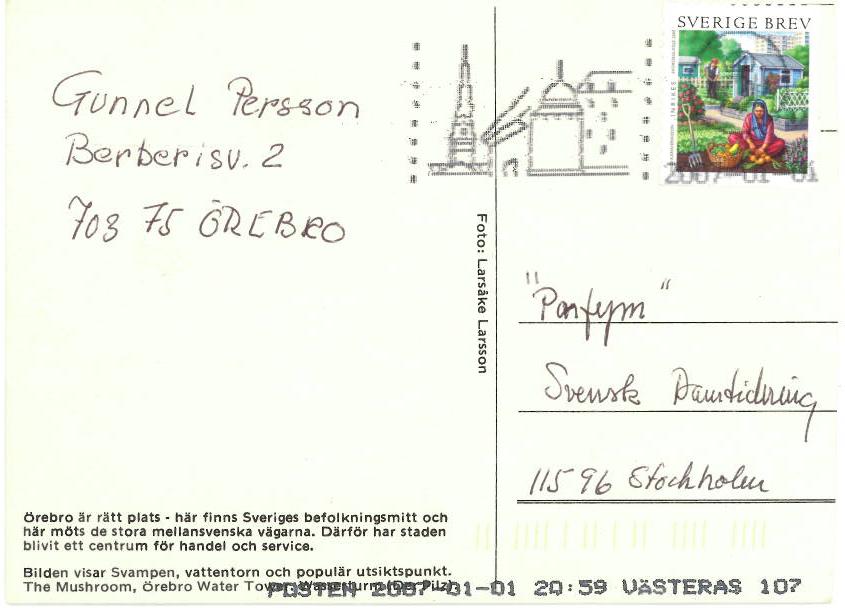 SVERIGE BREV
INRIKES
2007-01-01
Gunnel Persson
Berberisv. 2
703 75 ÖREBRO
Foto: Larsåke Larsson
"Parfym"
Svensk Damtidning
115 96 Stockholm
Örebro är rätt plats - här finns Sveriges befolkningsmitt och
här möts de stora mellansvenska vägarna. Därför har staden
blivit ett centrum för handel och service.
Bilden visar Svampen, vattentorn och populär utsiktspunkt.
The Mushroom, Örebro Water Tower, Wasserturm (Der Pilz).
POSTEN 2007-01-01 20:59 VÄSTERÅS 107